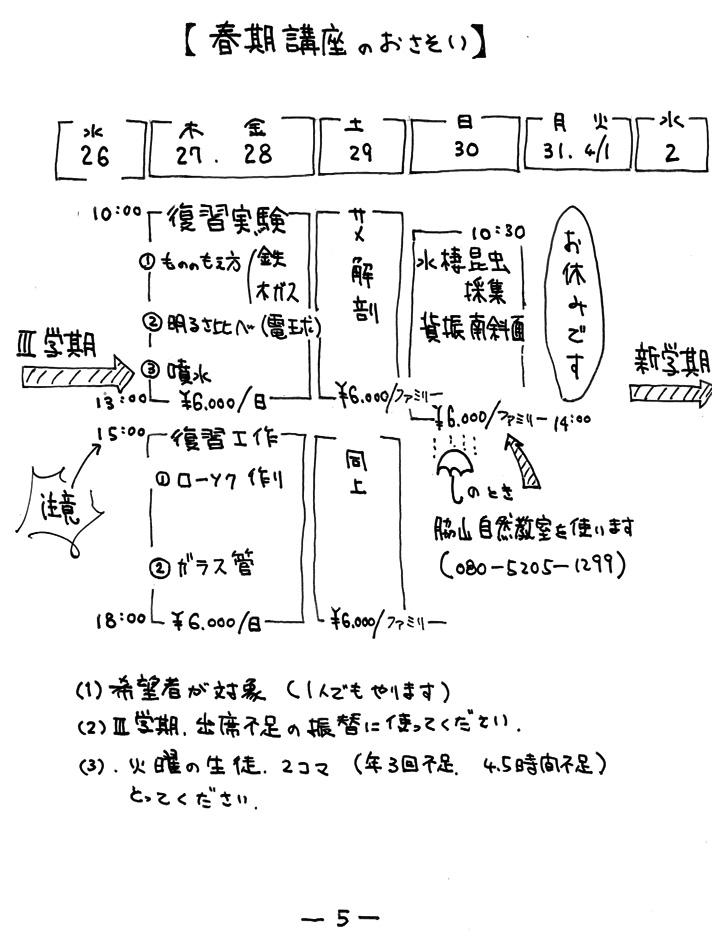 【春期講座のおさそい】
水 26
木 金 27. 28
土 29
日 30
月 火 31. 4/1
水 2
10:00
復習実験
① もののもえ方(鉄
木ガス
② 明るさ比べ(電球)
③ 噴水
13:00 ¥6.000/日
サメ解剖
¥6.000/ファミリー
10:30
水棲昆虫
採集
貨振南斜面
¥6.000/ファミリー 14:00
お休みです
Ⅲ学期
新学期
15:00
注意
復習工作
① ローソク作り
② ガラス管
18:00 ¥6.000/日
同上
¥6.000/ファミリー
のとき
脇山自然教室を使います
(080-5205-1299)
(1) 希望者が対象 (1人でもやります)
(2) Ⅲ学期.出席不足の振替に使ってください.
(3). 火曜の生徒. 2コマ (年3回不足. 4.5時間不足)
とってください.
— 5 —